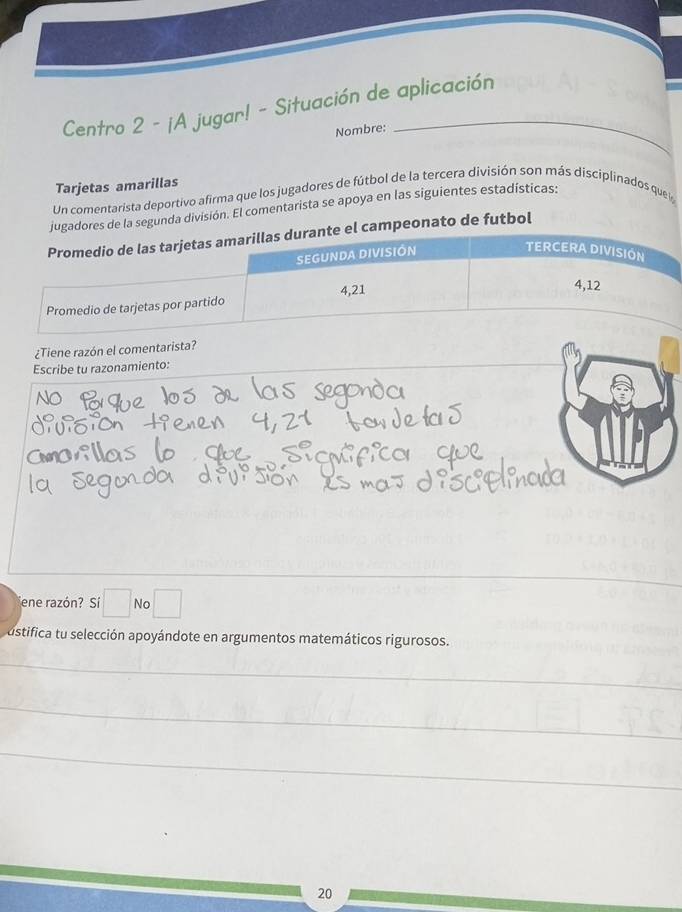 Centro 2 - ¡A jugar! - Situación de aplicación
Nombre:
Tarjetas amarillas
Un comentarista deportivo afirma que los jugadores de fútbol de la tercera división son más disciplinados que
jugadores de la segunda división. El comentarista se apoya en las siguientes estadísticas:
Promedio de las tarjetas amarillas durante el campeonato de futbol
SEGUNDA DIVISIÓN TERCERA DIVISIÓN
Promedio de tarjetas por partido 4,21 4,12
¿Tiene razón el comentarista?
Escribe tu razonamiento:
No Porque los de las segonda
división tienen 4,21 tarjetas
amarillas lo que significa que
la segonda división es mas disciplinada
iene razón? Sí No
ustifica tu selección apoyándote en argumentos matemáticos rigurosos.
20